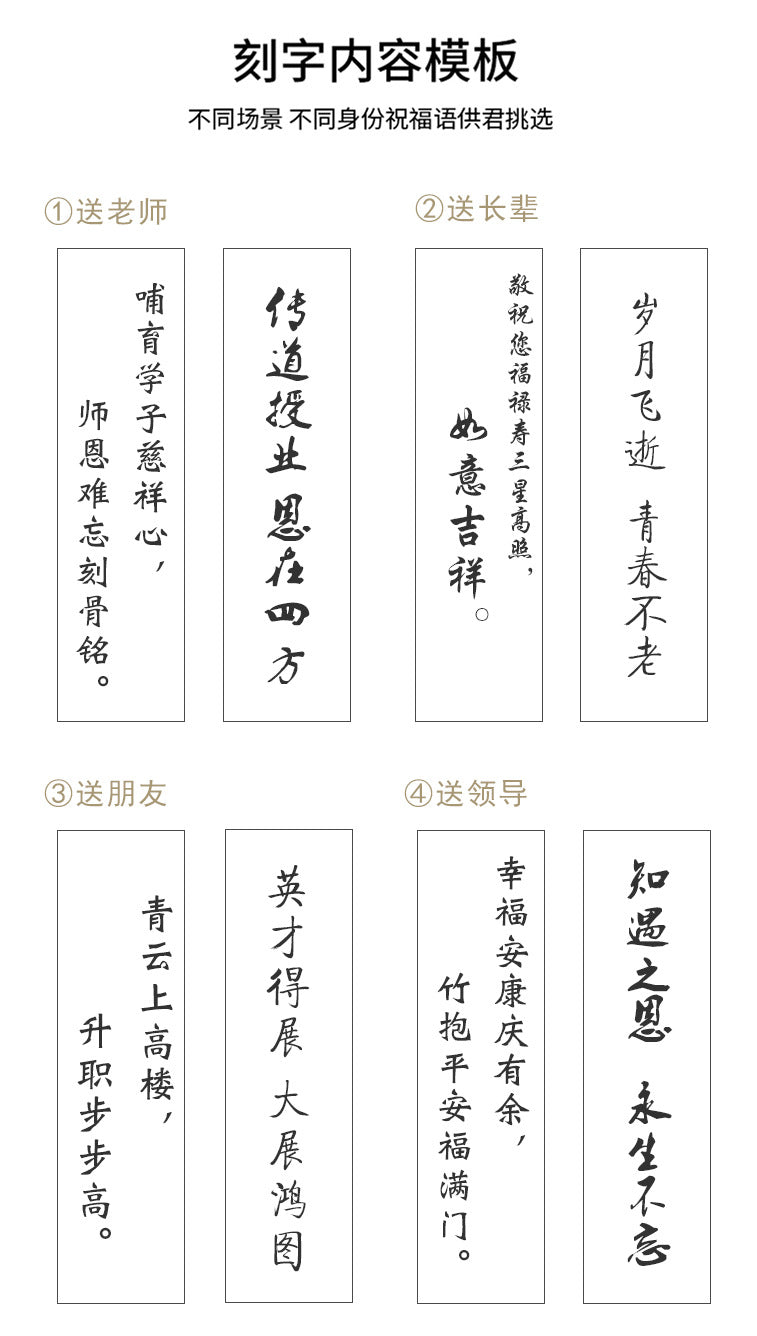 刻字内容模板
不同场景 不同身份祝福语供君挑选
①送老师
哺育学子慈祥心，
师恩难忘刻骨铭。
传道授业 恩在四方
②送长辈
敬祝您福禄寿三星高照，
如意吉祥。
岁月飞逝 青春不老
③送朋友
青云上高楼，
升职步步高。
英才得展 大展鸿图
④送领导
幸福安康庆有余，
竹抱平安福满门。
知遇之恩 永生不忘